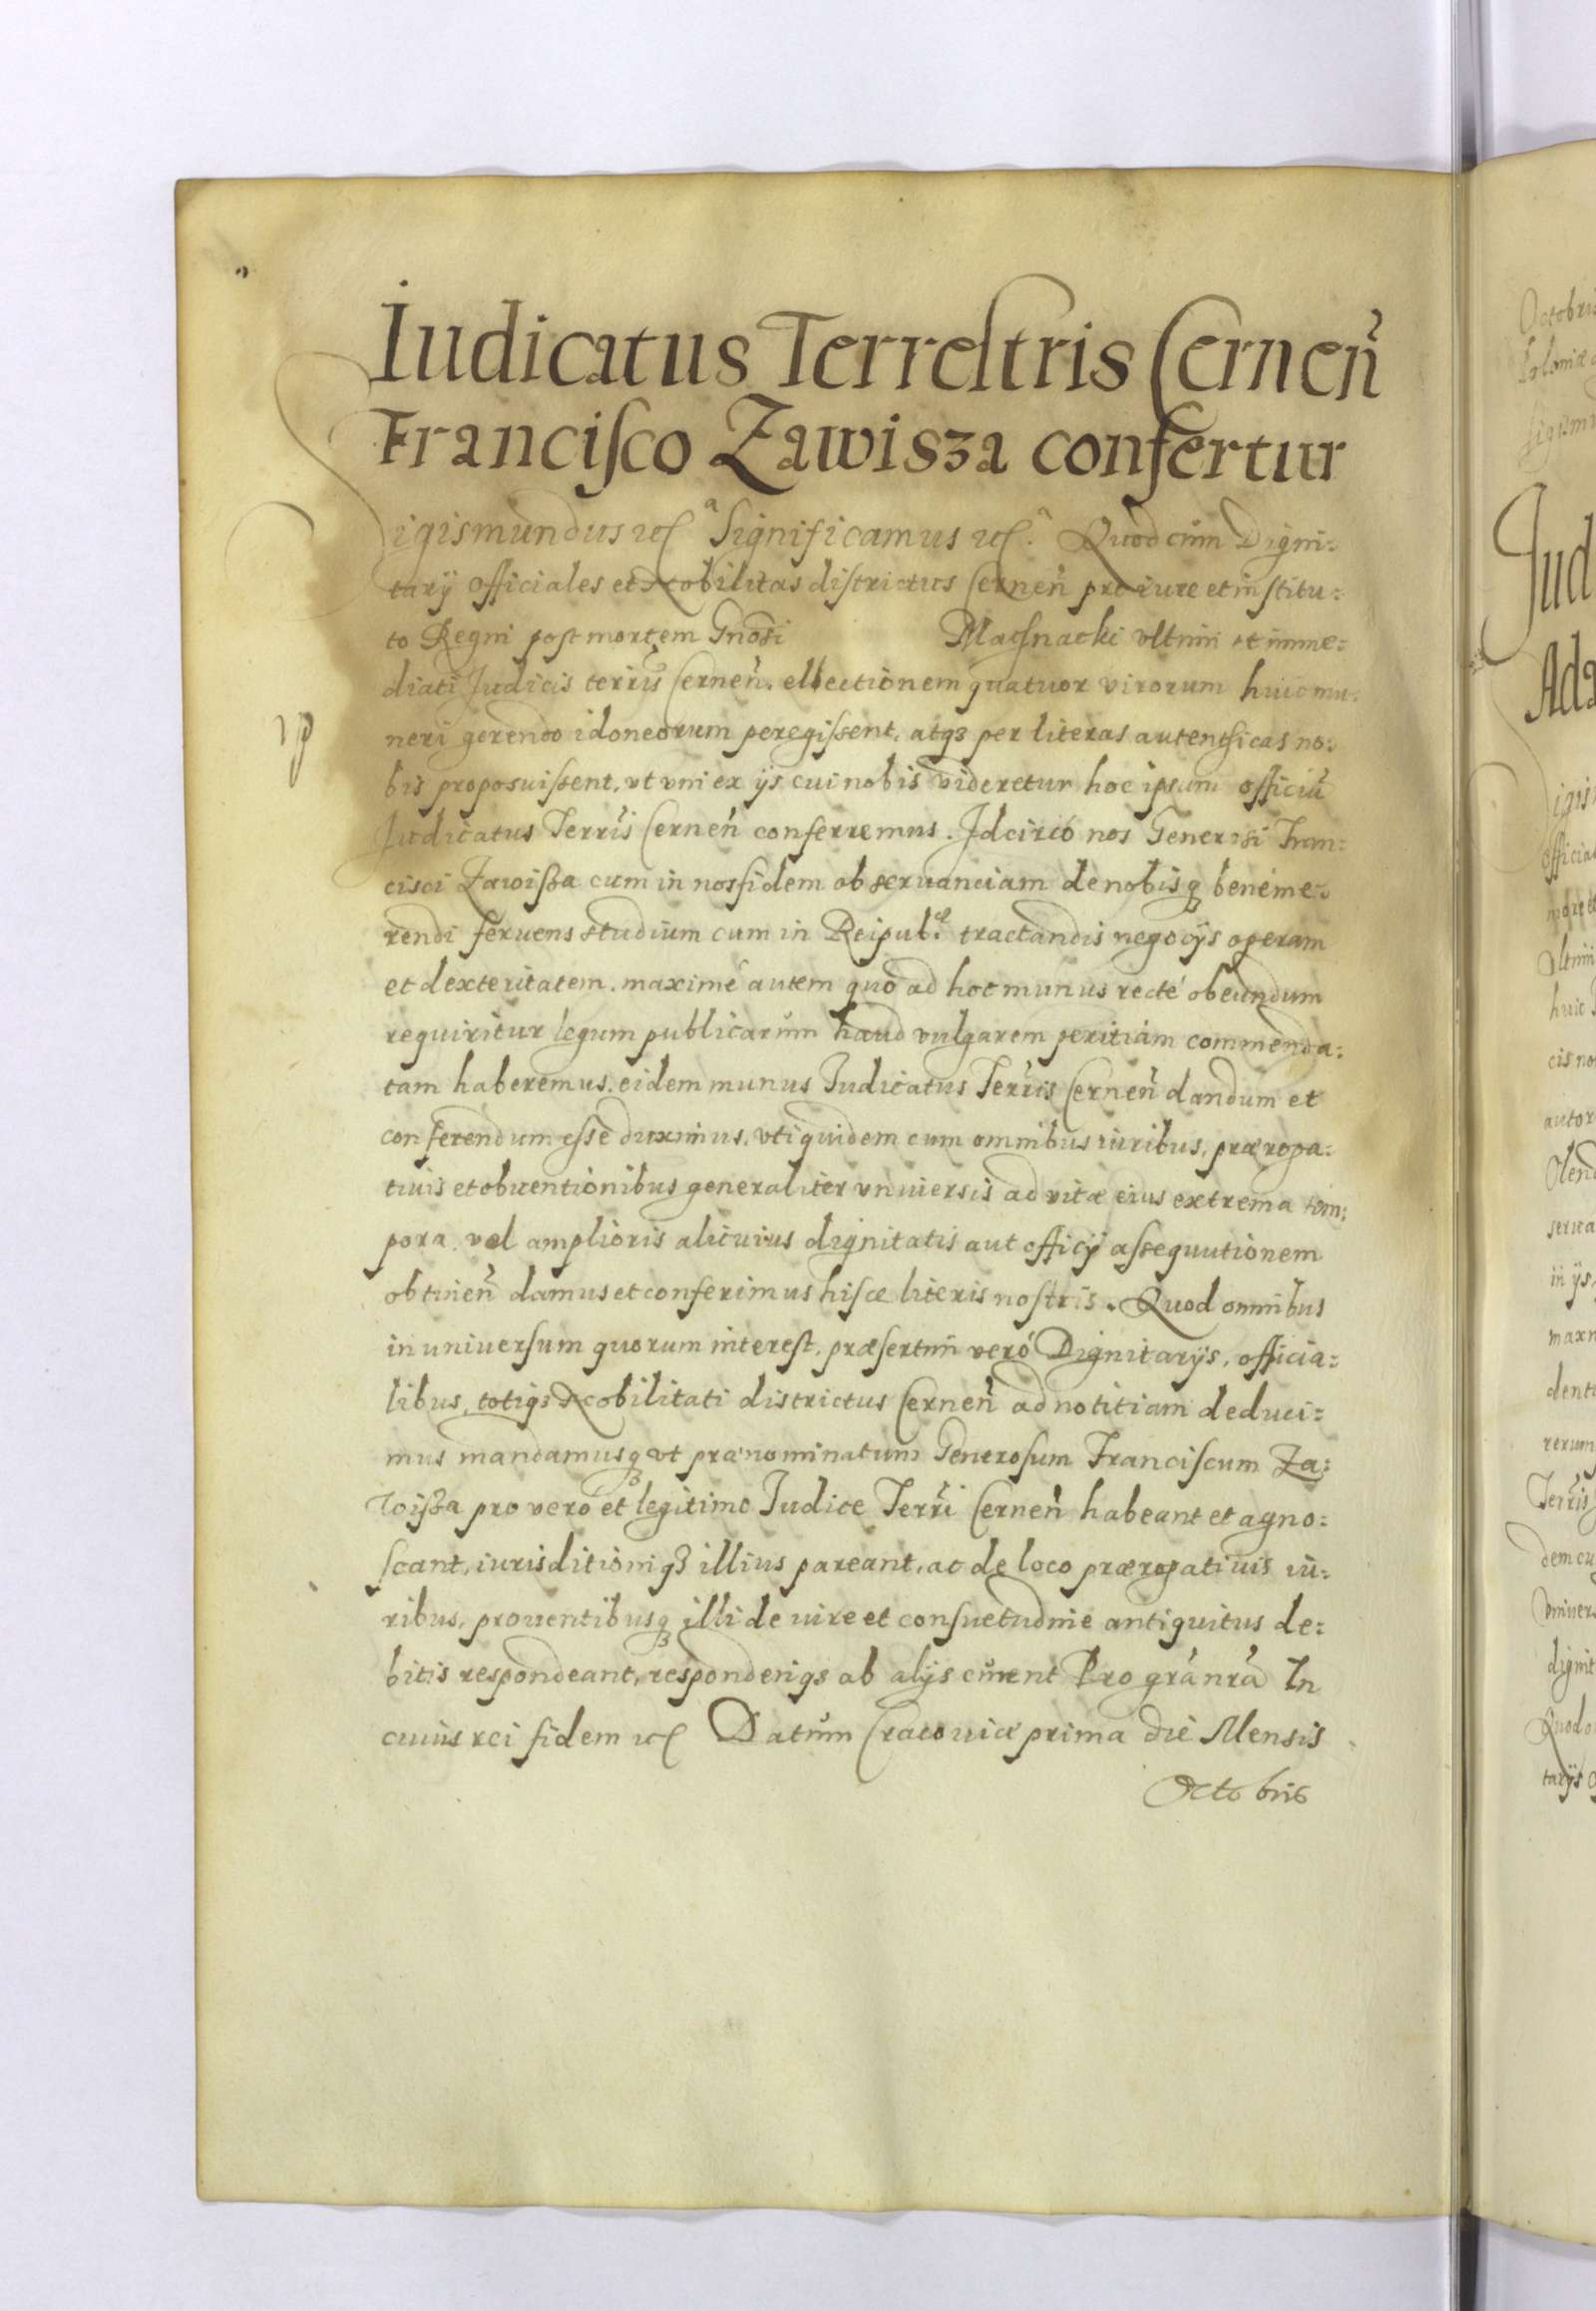 Iudicatus Terrestris Cerneñ
Francisco Zawisza confertur
Sigismundus etc. Significamus etc. Quod cum Digni:
tarij officiales et Nobilitas districtus Cerneñ pro iure et institu:
to Regni post mortem Gnosi Machnacki vltimi et imme:
diati Judicis terris Cerneñ. ellectionem quatuor virorum huic mu:
neri gerendo idoneorum peregissent, atqз per literas autenthicas no:
bis proposuissent, vt vni ex ijs cui nobis videretur hoc ipsum officiũ
Judicatus Terris Cerneñ conferremus. Idcirco nos Generosi Fran:
cisci Zawissa cum in nos fidem obseruanciam de nobisqз beneme:
rendi feruens studium cum in Reipub. tractandis negocijs operam
et dexteritatem. maximé autem quo ad hoc munus recté obeundum
requiritur legum publicarum haud vulgarem peritiam commenda:
tam haberemus. eidem munus Iudicatus Terris Cerneñ dandum et
conferendum esse duximus. vti quidem cum omnibus iuribus, præroga:
tiuis et obuentionibus generaliter vniuersis ad vitæ eius extrema tem:
pora. vel amplioris alicuius dignitatis aut officij assequutionem
obtineñ damus et conferimus hisce literis nostris. Quod omnibus
in uniuersum quorum interest. præsertim veró Dignitarijs, officia:
libus, totiqз Nobilitati districtus Cerneñ ad notitiam deduci:
mus mandamusqз vt prænominatum Generosum Franciscum Za:
wissa pro vero et legitimo Iudice Terri Cerneñ habeant et agno:
scant, iurisditioniqз illius pareant, ac de loco prærogatiuis iu:
ribus, prouentibusqз illi de iure et consuetudine antiquitus de:
bitis respondeant, responderiqз ab alijs curent Pro gra nra In
cuius rei fidem etc Datum Cracouiæ prima die Mensis
Octobris